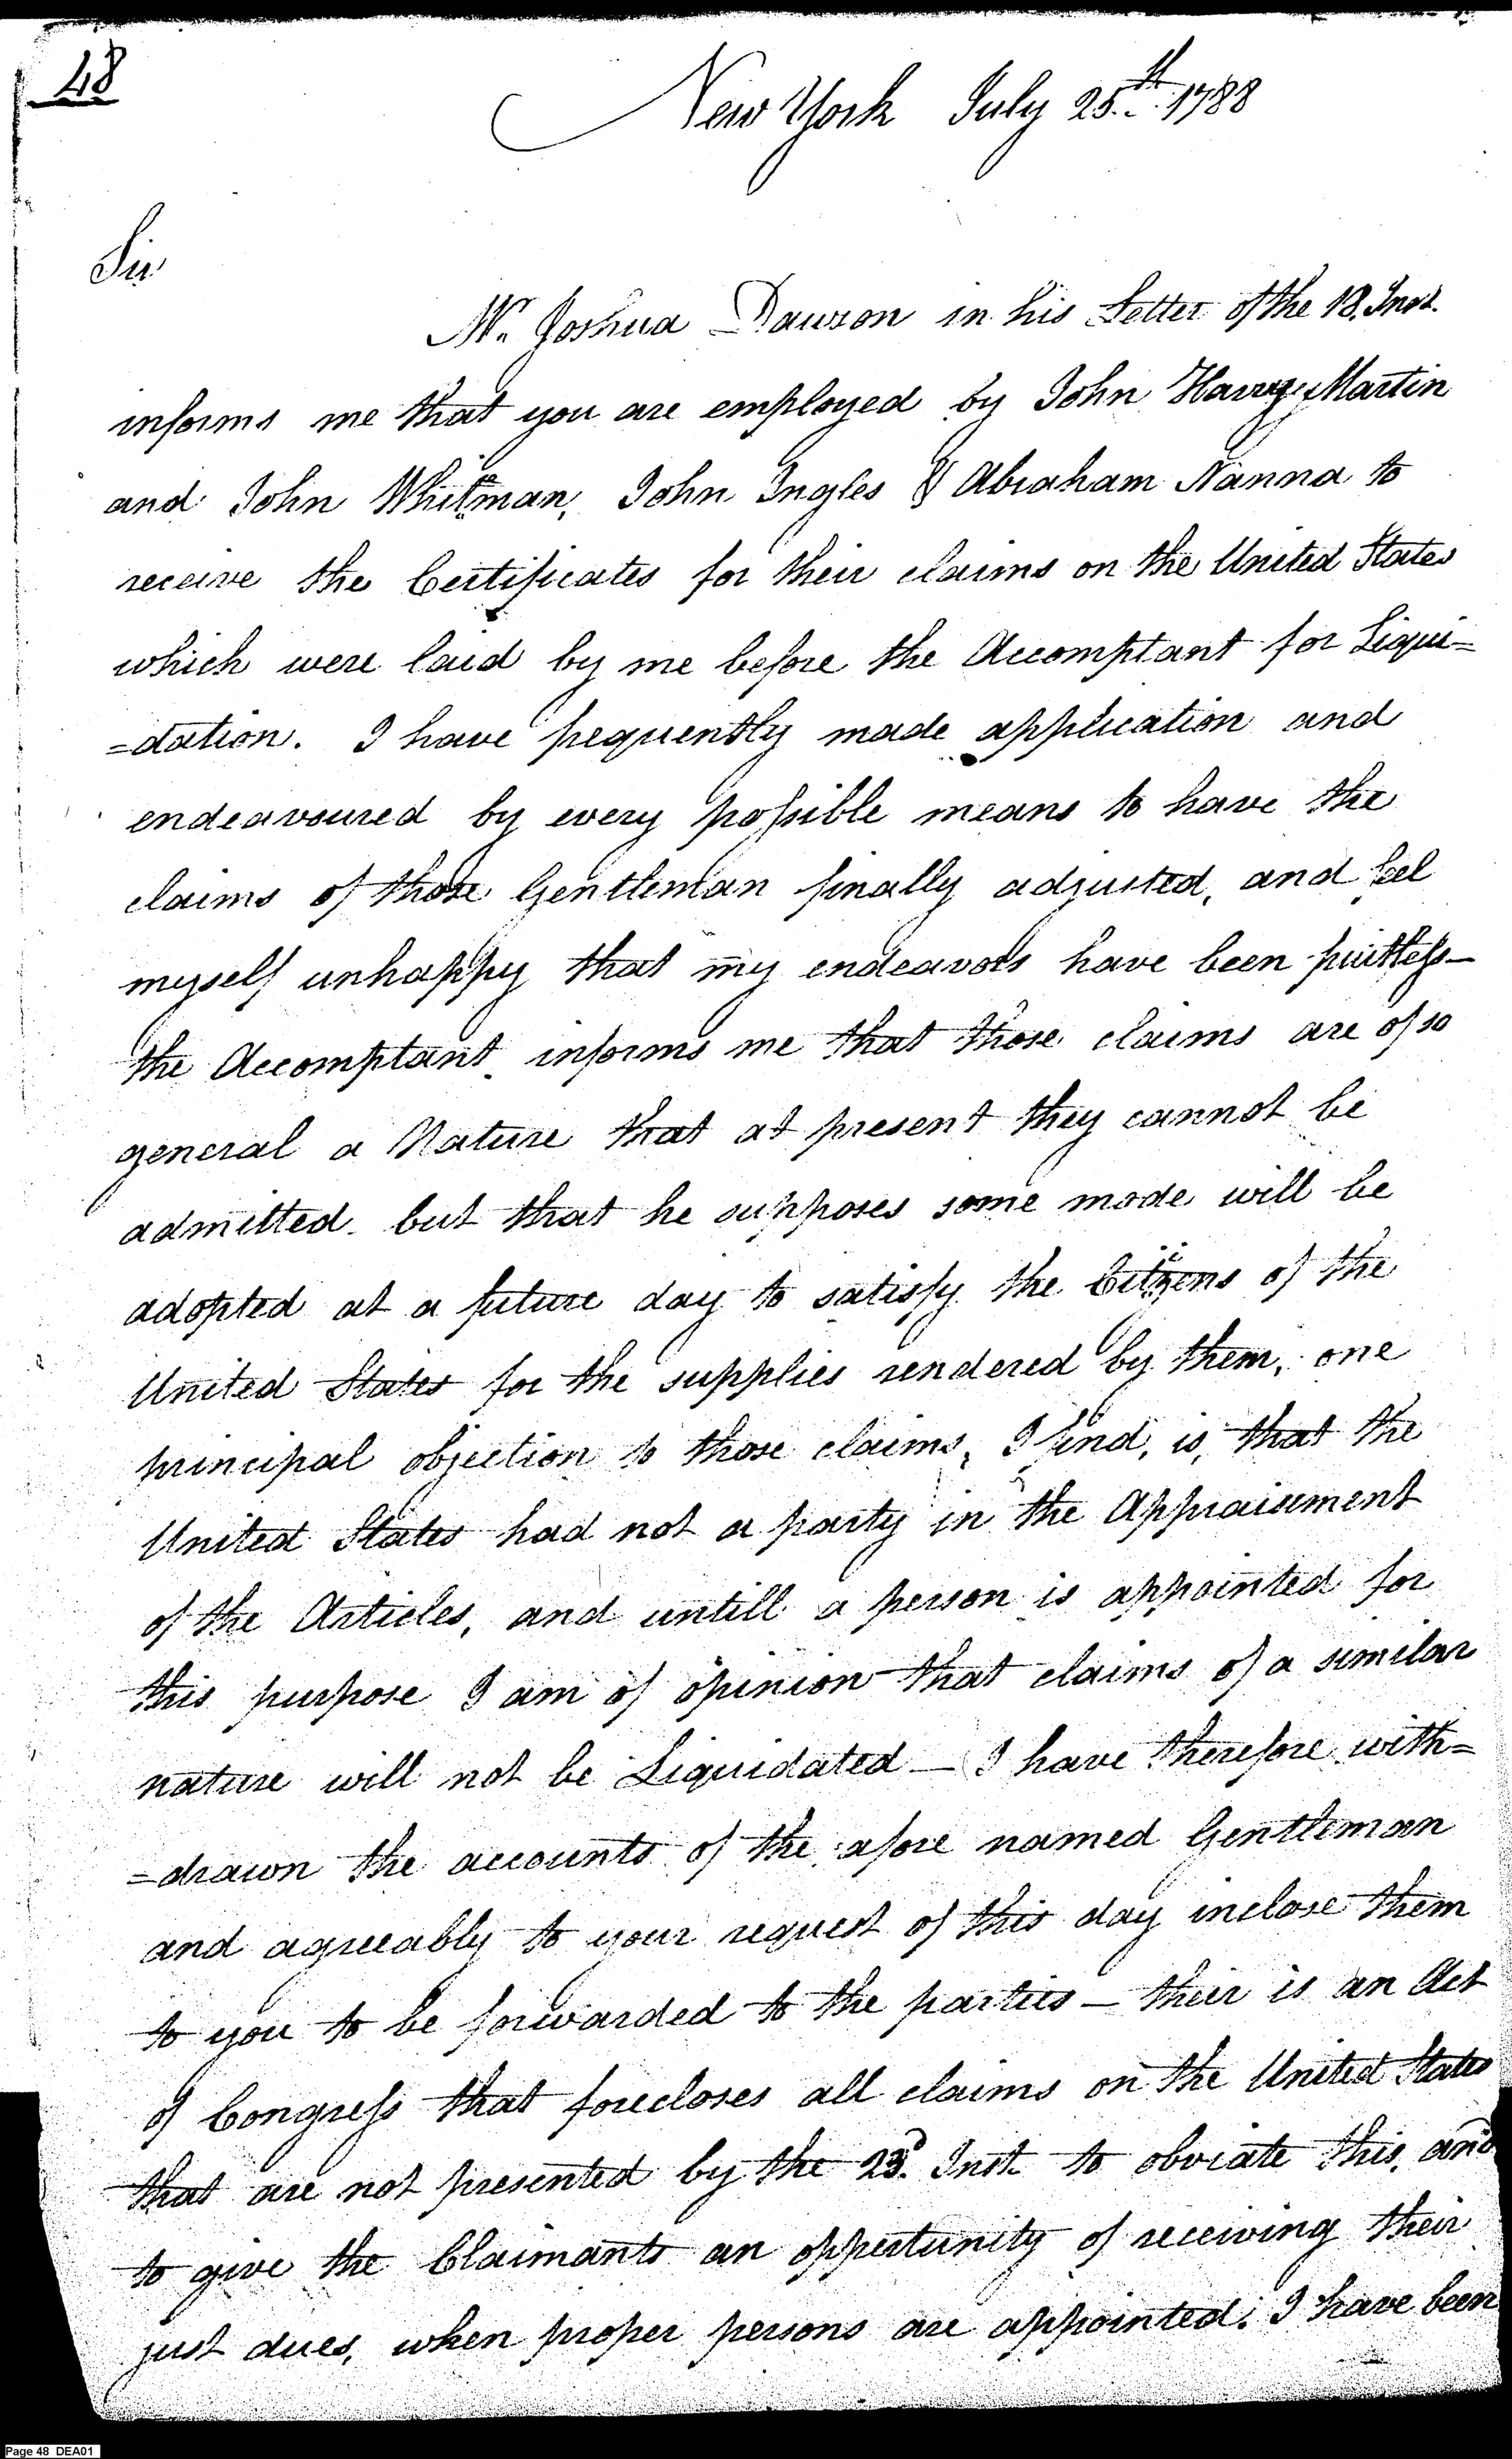 48
New York July 25.th 1788
Sir
Mr. Joshua Dawson in his Letter of the 18. Inst.
informs me that you are employed by John Harvy Martin
and John Whitman, John Ingles & Abraham Nanna to
receive the Certificates for their claims on the United States
which were laid by me before the Accomptant for Liqui=
=dation. I have frequently made application and
endeavoured by every possible means to have the
claims of those Gentleman finally adjusted, and feel
myself unhappy that my endeavors have been fruitless—
the Accomptant informs me that those claims are of so
general a Nature that at present they cannot be
admitted. but that he supposes some mode will be
adopted at a future day to satisfy the Citizens of the
United States for the supplies rendered by them, one
principal objection to those claims, I find, is, that the
United States had not a party in the Appraisement
of the Articles, and untill a person is appointed for
this purpose I am of opinion that claims of a similar
nature will not be Liquidated — I have therefore with=
=drawn the accounts of the afore named Gentleman
and agreeably to your request of this day inclose them
to you to be forwarded to the parties — their is an Act
of Congress that forecloses all claims on the United States
that are not presented by the 23d. Inst. to obviate this, and
to give the Claimants an oppertunity of receiving their
just dues, when proper persons are appointed. I have been
Page 48 DEA01